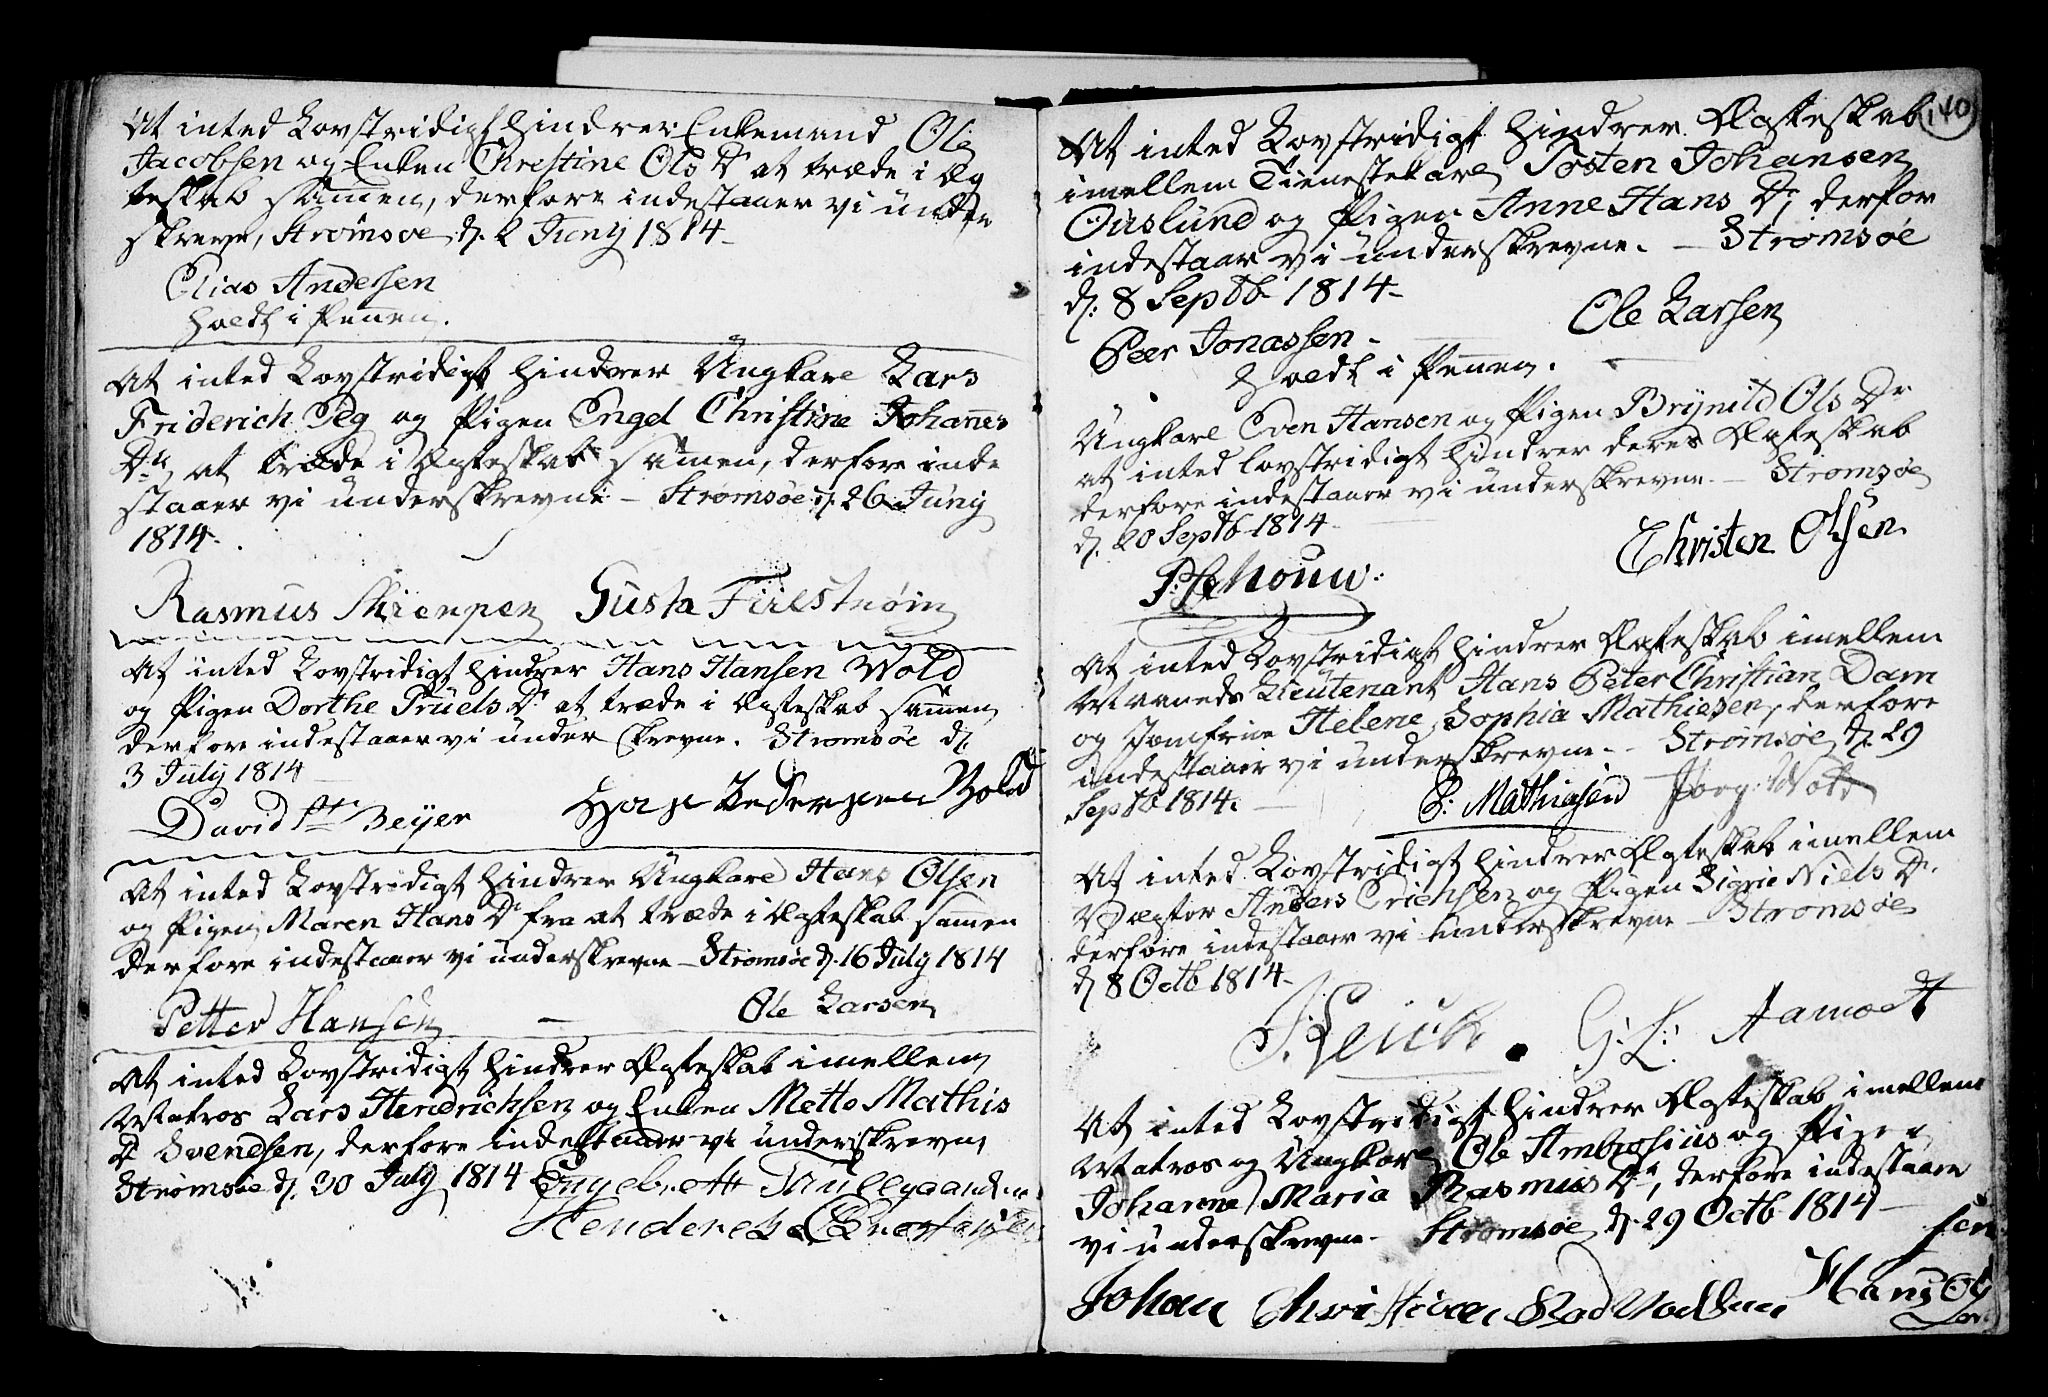 At inted Lovstridigt hindrer Enkemand Ole
Jacobsen og Enken Christine Ols Dr at træde i Æg
teskab samen, derfore indestaaer vi under
skrevne, Strømsøe d. 2 Juny 1814
Elias Andersen
holdt i Pennen.
At inted Lovstridigt hindrer Ungkarl Lars
Friderich Peg og Pigen Engel Christine Johannes
Dr at træde i Ægteskab samen, derfore inde
staaer vi underskrevne - Strømsøe d. 26 Juny
1814.
Rasmus Gusta
At inted Lovstridigt hindrer Hans Hansen Wold
og Pigen Dorthe Truels Dr at træde i Ægteskab samen
derfore indestaaer vi under skrevne. Strømsøe d.
3 July 1814
David Beyer
At inted Lovstridigt hindrer Ungkarl Hans Olsen
og Pigen Maren Hans Dr fra at træde i Ægteskab samen
derfore indestaaer vi underskrevne - Strømsøe d. 16 July 1814
Petter Hansen - Ole Larsen
At inted Lovstridigt hindrer Ægteskab imellem
Matros Lars Hendrichsen og Enken Mette Mathis
Dr Svendsen, derfore indestaaer vi underskrevne
Strømsøe d. 30 July 1814 Engebrett
140
At inted Lovstridigt hindrer Ægteskab
imellem Tienestekarl Tosten Johansen
og Pigen Anne Hans Dr, derfor
indestaaer vi underskrevne. - Strømsøe
d. 8 Septb 1814 -
Ole Larsen
Peer Jonassen -
holdt i Pennen.
Ungkarl Even Hansen og Pigen Brynild Ols Dr
at inted lovstridigt hindrer deres Ægteskab
derfore indestaaer vi underskrevne. - Strømsøe
d. 20 Septb 1814
Christen Olsen
At inted Lovstridigt hindrer Ægteskab imellem
Maaneds Lieutenant Hans Peter Christian Dam
og Jomfrue Helene Sophia Mathiesen, derfore
indestaaer vi underskrevne - Strømsøe d. 29
Septb 1814.
Mathiasen
At inted Lovstridigt hindrer Ægteskab imellem
Vægter Anders Erichsen og Pigen Sigrie Niels Dr.
derfore indestaaer vi underskrevne - Strømsøe
d 8 Octb 1814 -
G: L: Aamodt
At inted Lovstridigt hindrer Ægteskab imellem
Matros og Ungkarl Ole Ambrosius og Pigen
Johanne Maria Rasmus Dr, derfore indestaaer
vi underskrevne - Strømsøe d. 29 Octb 1814 -
Johan Christian Hans Ol
sen